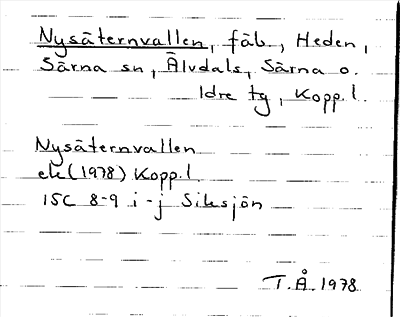 Nysäternvallen, fäb., Heden,
Särna sn, Älvdals, Särna o.
Idre tg, Kopp. l.
Nysäternvallen
ek (1978) Kopp. l.
15C 8-9 i-j Siksjön
T. Å. 1978